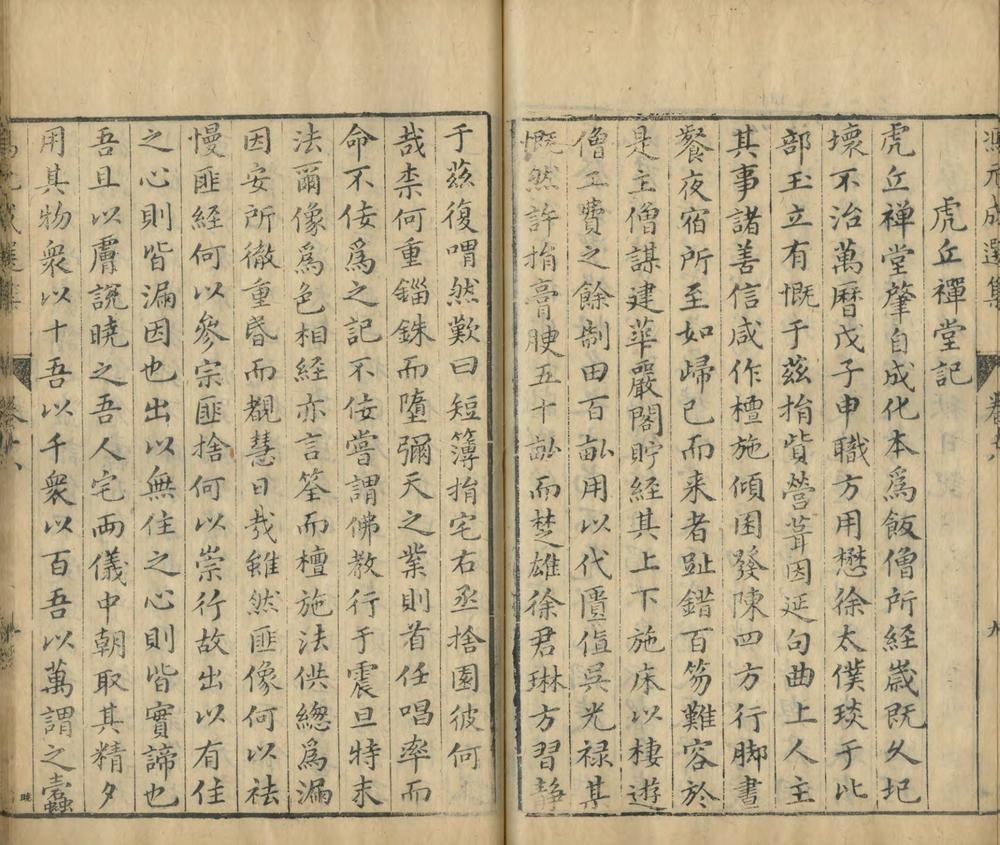 馮元成選集
卷
九
虎丘禪堂記
虎丘禪堂肇自成化本爲飯僧所經嵗既久圮
壞不治萬曆戊子申職方用懋徐太僕琰于此
部玉立有慨于茲捐貲營葺因延句曲上人主
其事諸善信咸作檀施傾囷發陳四方行脚晝
餐夜宿所至如歸已而来者趾錯百笏難容於
是主僧謀建華嚴閣貯経其上下施床以棲遊
僧工費之餘制田百畝用以代匱值吳光禄其
慨然許捐膏腴五十畝而楚雄徐君琳方習静
于茲復喟然歎曰短簿捐宅右丞捨園彼何人
哉柰何重錙銖而墮彌天之業則首任唱率而
命不佞爲之記不佞嘗謂佛教行于震旦特末
法爾像爲色相経亦言筌而檀施法供總爲漏
因安所徹重昏而覩慧日㢤雖然匪像何以祛
慢匪経何以參宗匪捨何以崇行故出以有住
之心則皆漏因也出以無住之心則皆實諦也
吾且以膚説曉之吾人宅兩儀中朝取其精夕
用其物衆以十吾以千衆以百吾以萬謂之蠹